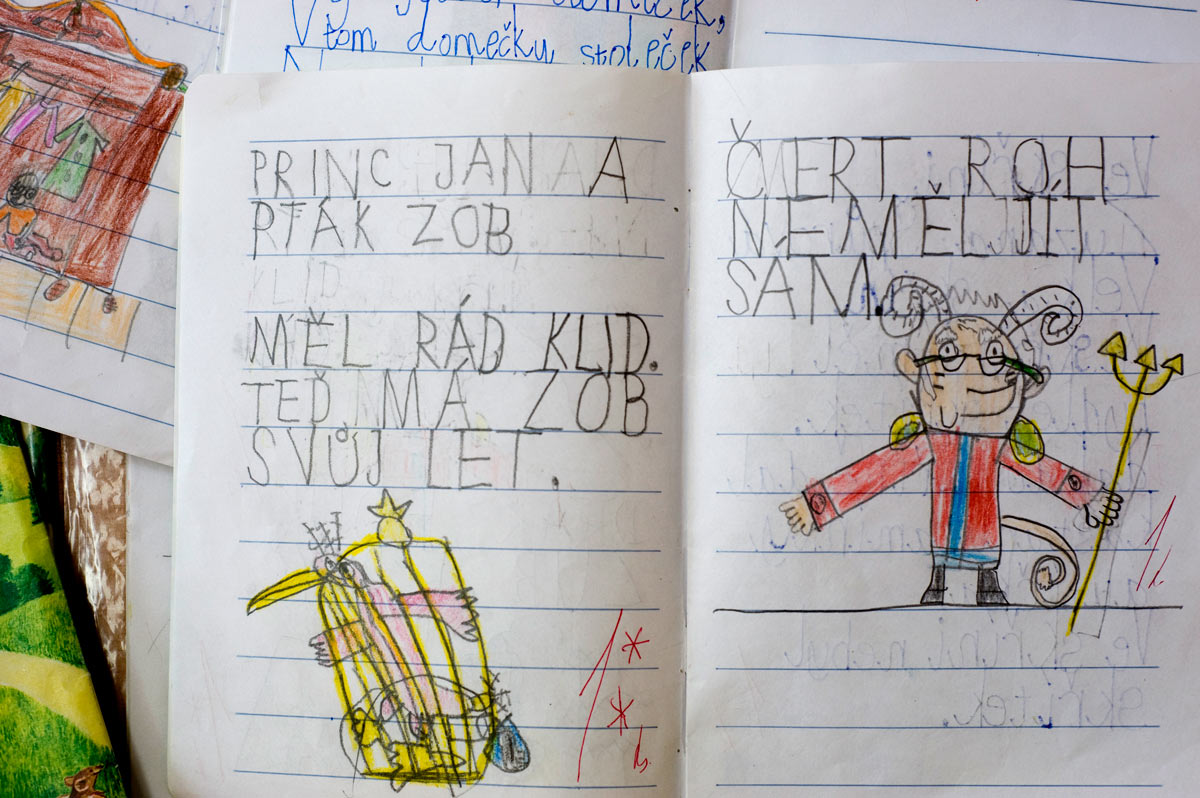 domeček,
V tom domečku stoleček
PRINC JAN A
PTÁK ZOB
MĚL RÁD KLID.
TEĎ MÁ ZOB
SVŮJ LET.
1*
*
ČERT ROH
NEMĚL JÍT
SÁM.
1